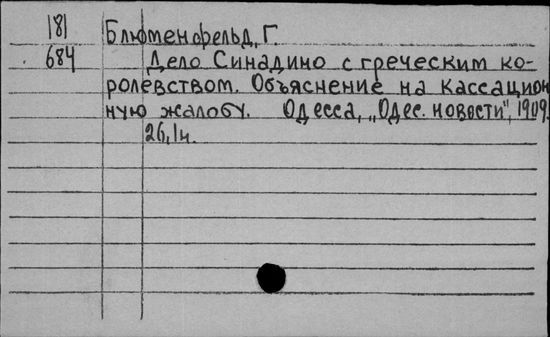 181 Блюменфельд, Г.
684 Дело Синадино с греческим ко-
ролевством. Объяснение на кассацион
ную жалобу. Одесса, „Одес. новости", 1909.
26, 1н.